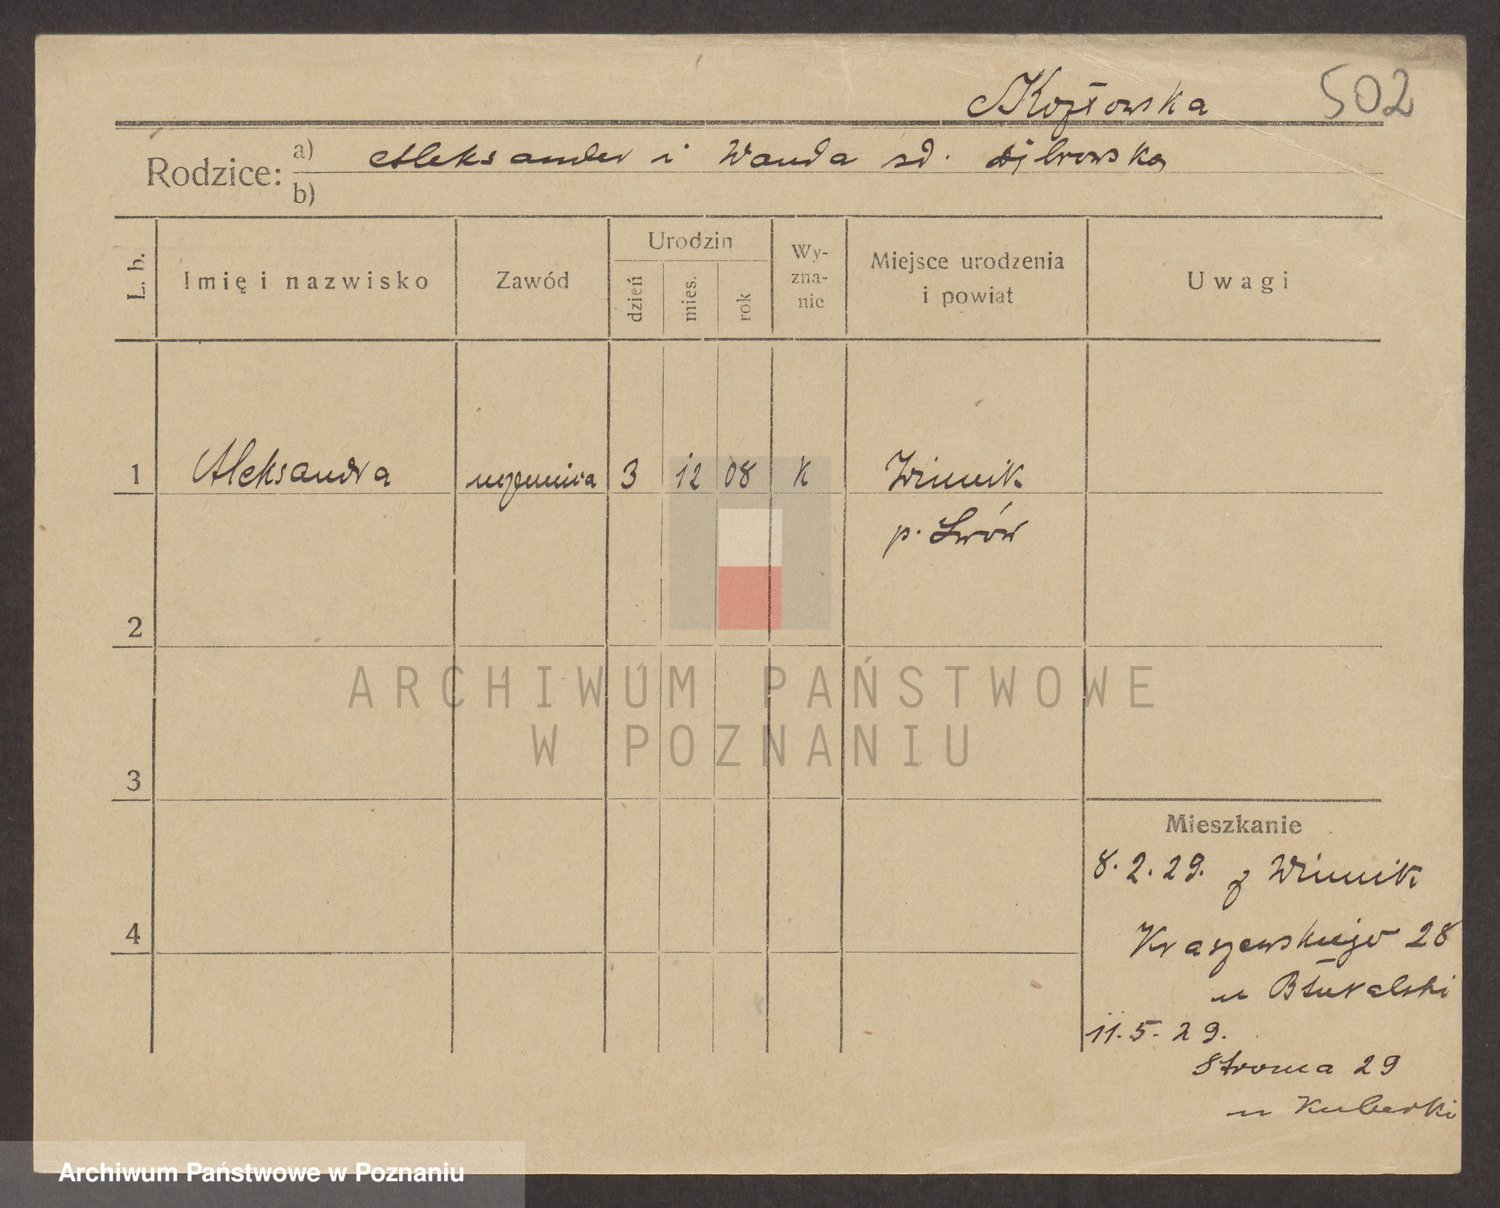 Kozłowska 502
Rodzice: a) Aleksander i Wanda zd.
b)
L. b.
Imię i nazwisko
Zawód
Urodzin
dzień
mies.
rok
Wy-
zna-
nie
Miejsce urodzenia
i powiat
Uwagi
1 Aleksandra uczennica 3 12 08 K Winnik
p. Lwów
2
ARCHIWUM PAŃSTWOWE
W POZNANIU
3
Mieszkanie
8.2.29. z Winnik
4
Kraszewskiego 28
u
11.5.29.
Stroma 29
u Kuberki
Archiwum Państwowe w Poznaniu